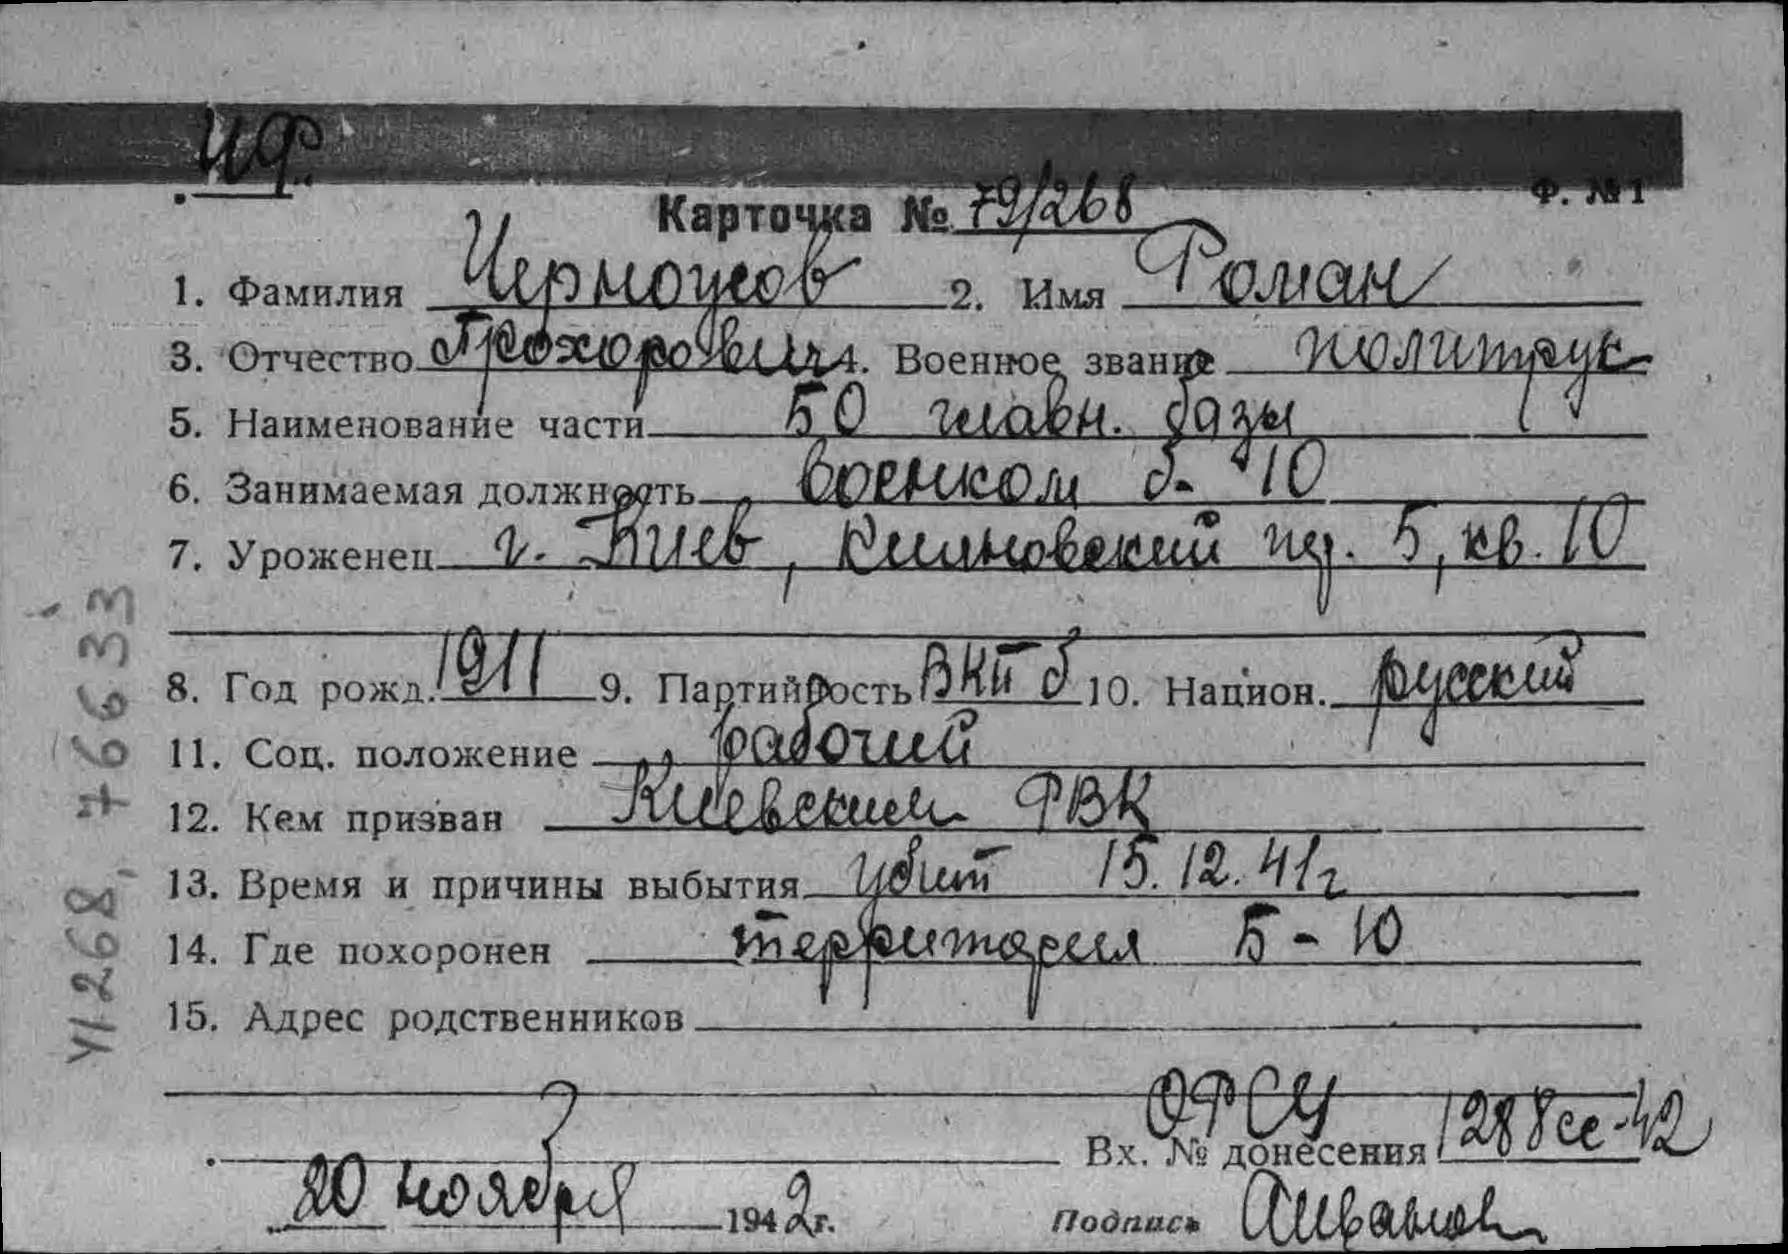 ИФ.
Ф. №1
Карточка № 79/268
1. Фамилия Черноусов 2. Имя Роман
3. Отчество Прохорович 4. Военное звание политрук
5. Наименование части 50 главн. базы
6. Занимаемая должность военком б-10
7. Уроженец г. Киев, Кияновский пер. 5, кв. 10
8. Год рожд. 1911 9. Партийность ВКП б 10. Национ. русский
11. Соц. положение рабочий
12. Кем призван Киевским РВК
13. Время и причины выбытия убит 15.12.41г
14. Где похоронен территория Б-10
15. Адрес родственников
Вх. № донесения 1288сс-42
20 ноября 1942г.
Подпись
VI-268, 76633